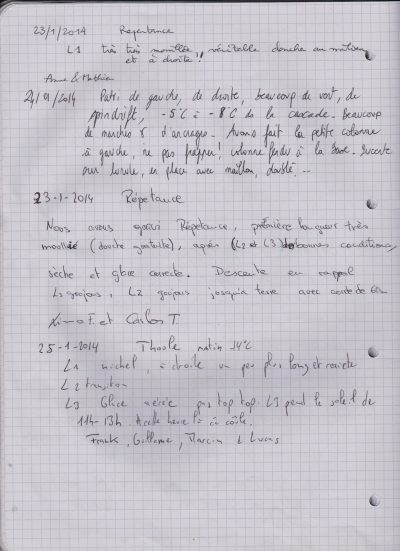 23/1/2014 Repentance
L1 très très mouillée, véritable douche au milieu
et à droite !!
Anne & Mathieu
24/01/2014 Patri de gauche, de droite, beaucoup de vent, de
spindrift, -5°C à -8°C ds la cascade. Beaucoup
de marches & d'ancrages. Avons fait la petite colonne
à gauche, ne pas frapper! colonne fendue à la base.
sur lunule, en place avec maillon, doublé...
23-1-2014 Répétance
Nous avons gravi Répetance, première longueur très
mouillée (douche gratuite), après (L2 et L3) bonnes conditions,
sèche et glace correcte. Descente en rappel
L3 goujons, L2 goujons jusqu'a terre avec corde de 60m
et Carlos T.
25-1-2014 Thoule matin -14°C
L1 nickel, à droite un peu plus long et raide
L2 transition
L3 Glace pas top top. L3 prend le soleil de
11h-13h à côté,
Frank, Guillaume, Marcin & Lucas